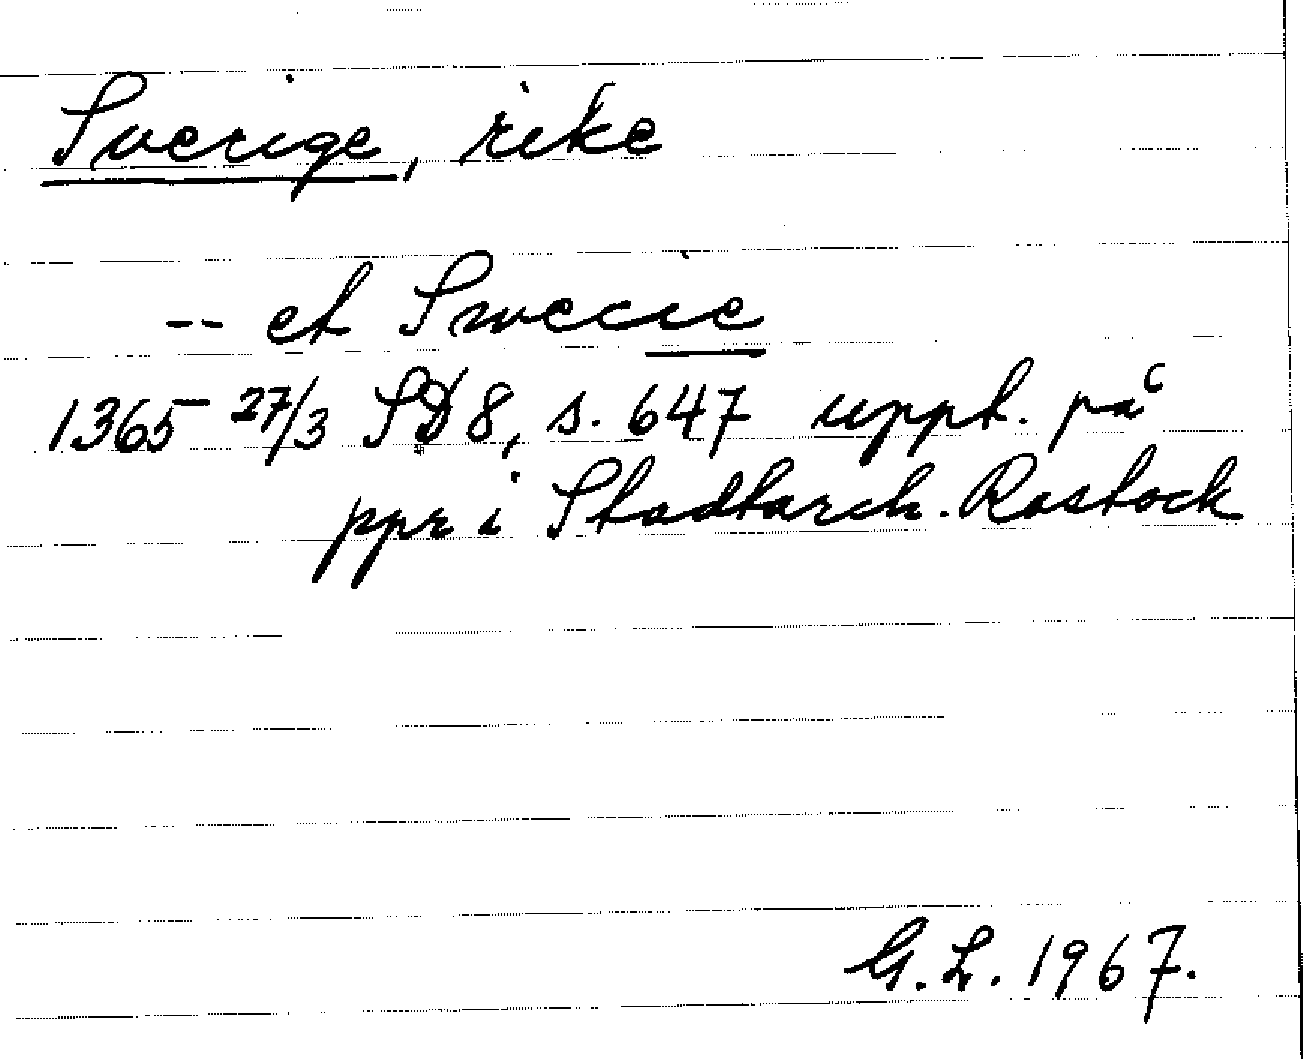 Sverige, rike
-- et Swecie
1365 27/3 SD 8, s. 647 uppt. på
ppr i Stadtarch. Rostock
G. L. 1967.